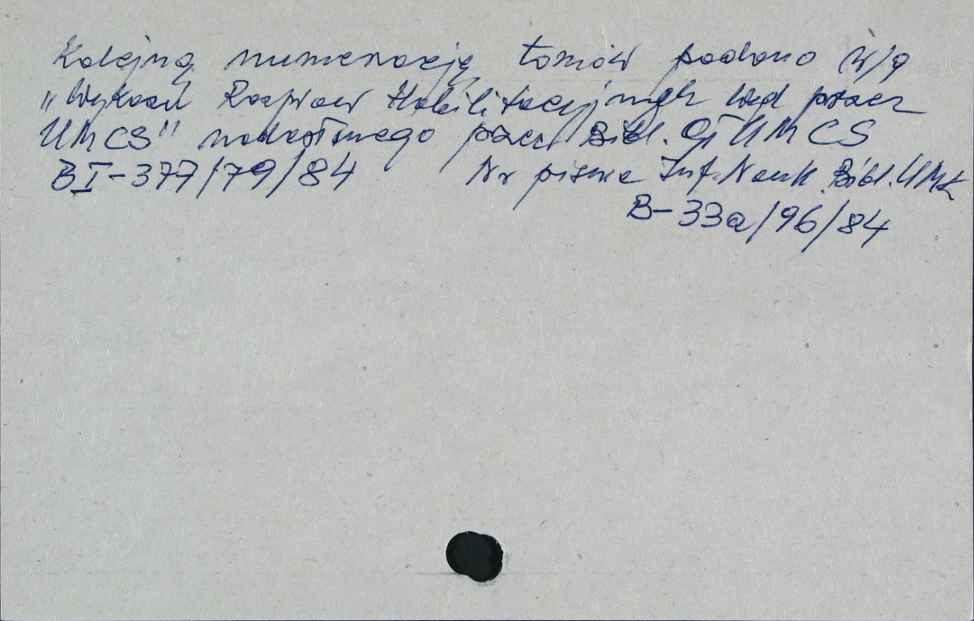 Kolejną numerację tomów podano w/g
"Wykazu Rozpraw Habilitacyjnych wyd. przez
UMCS" nadesłanego przez Bibl. Gł. UMCS
BI-377/79/84 Nr pisma Inf. Nauk. Bibl. UMK
B-33a/96/84